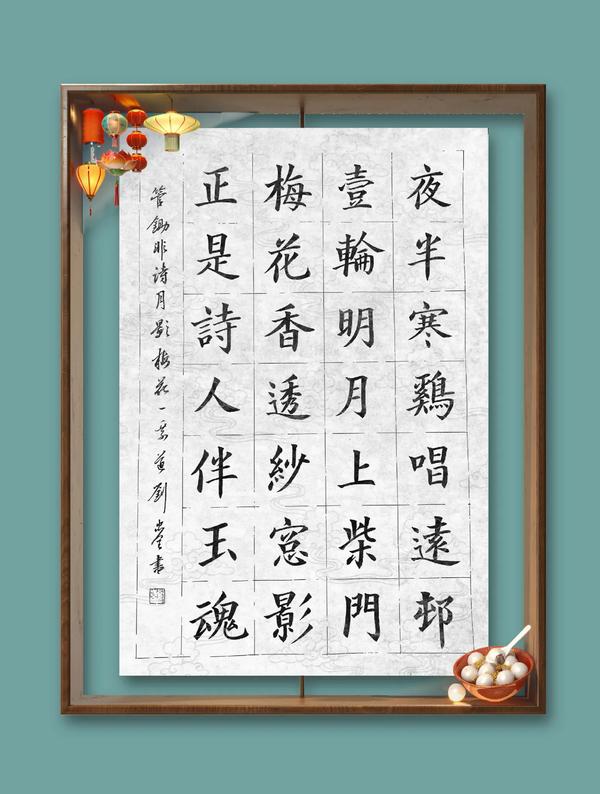 夜半寒鷄唱遠邨
壹輪明月上柴門
梅花香透紗窓影
正是詩人伴玉魂
管鋤非诗月影梅花一首
书